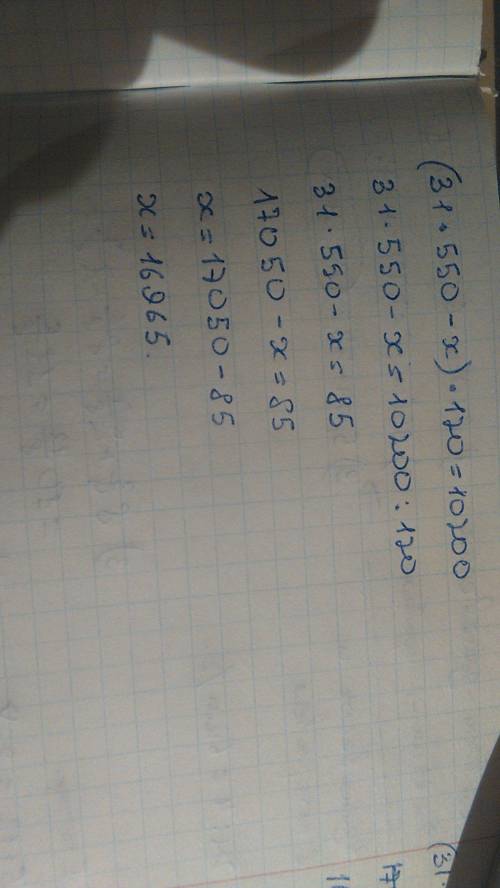 (31·550-x)·120=10200
31·550-x=10200:120
31·550-x=85
17050-x=85
x=17050-85
x=16965.
(31·
17